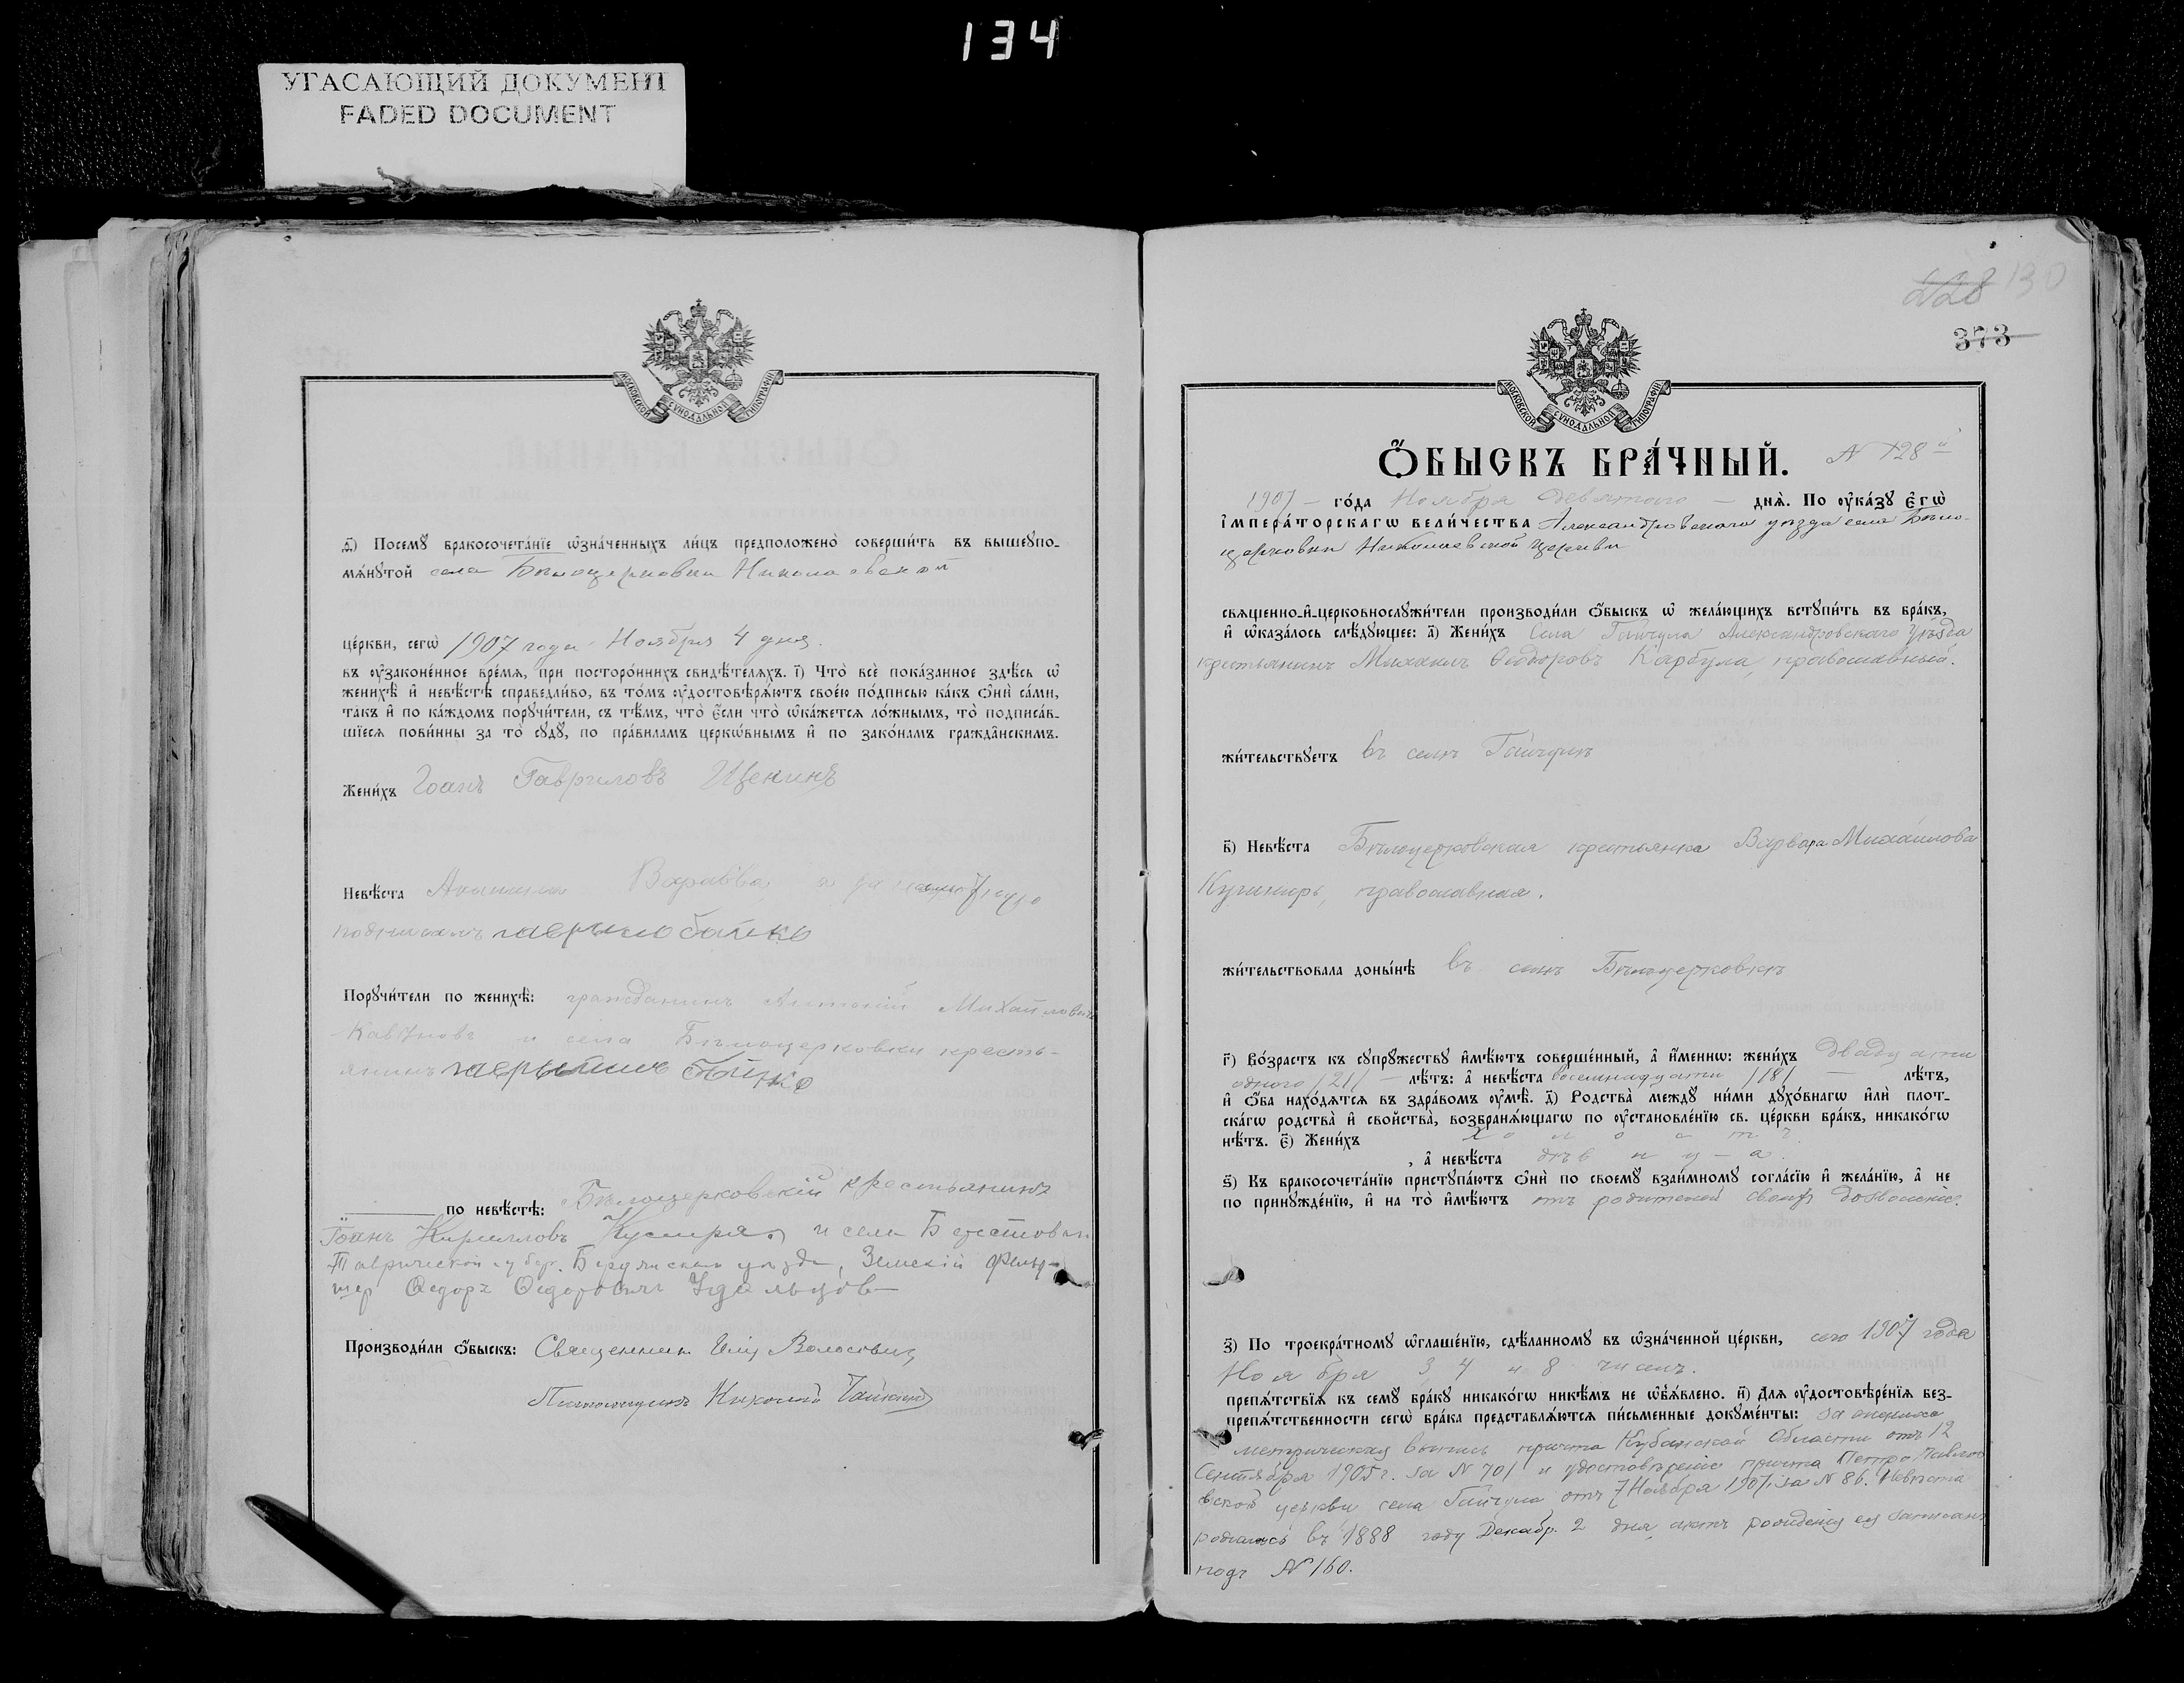 134
УГАСАЮЩИЙ ДОКУМЕНТ
FADED DOCUMENT
МОСКОВСКОЙ СѴНОДАЛЬНОЙ ТИПОГРАФІИ
ѳ҃) Посемꙋ бракосочета́нїе ѡ҆зна́ченныхъ ли́цъ предположено̀ соверши́ть въ вышеꙋпо-
мѧ́нꙋтой села Бѣлоцерковки Николаевской
це́ркви, сегѡ̀ 1907 года Ноября 4 дня.
въ ᲂу҆зако́ненное вре́мѧ, при посторо́ннихъ свидѣ́телѧхъ. і҃) Что̀ всѐ пока́занное здѣ́сь ѡ҆
женихѣ̀ и҆ невѣ́стѣ справедли́во, въ то́мъ ᲂу҆достовѣрѧ́ютъ свое́ю по́дписью ка́къ ѻ҆нѝ са́ми,
та́къ и҆ по ка́ждомъ порꙋчи́тели, съ тѣ́мъ, что̀ є҆́сли что̀ ѡ҆ка́жетсѧ ло́жнымъ, то̀ подписа́в-
шїесѧ пови́нны за то̀ сꙋдꙋ̀, по пра́виламъ церкѡ́внымъ и҆ по зако́намъ гражда̑нскимъ.
Жени́хъ Іоанъ Гавриловъ Щекинъ
Невѣ́ста Акилина Варавва а за неграмотную
подписалъ гаврыло бойко
Порꙋчи́тели по женихѣ̀: гражданинъ Антоній Михайловичъ
и села Бѣлоцерковки кресть-
янинъ гаврыилъ бойко
по невѣ́стѣ: Бѣлоцерковскій крестьянинъ
Іоанъ Кирилловъ и села Берестоваго
Таврической губер. Бердянскаго уѣзда, Земскій Фельд-
шер Ѳедоръ Ѳедоровичъ Удальцов
Производи́ли ѻ҆́быскъ: Священникъ Волосовичъ
Псаломщикъ Николай
228 130
373
МОСКОВСКОЙ СѴНОДАЛЬНОЙ ТИПОГРАФІИ
Ѻ҆́БЫСКЪ БРА́ЧНЫЙ. N 128й
1907 – го́да Ноября девятаго – днѧ̀. По ᲂу҆ка́зꙋ є҆гѡ̀
і҆мпера́торскагѡ вели́чества Александровскаго уѣзда села Бѣло-
церковки Николаевской церкви
свѧщенно-и҆-церковнослꙋжи́тели производи́ли ѻ҆́быскъ ѡ҆ жела́ющихъ встꙋпи́ть въ бра́къ,
и҆ ѡ҆каза́лось слѣ́дꙋющее: а҃) Жени́хъ Села Гайчула Александровскаго уѣзда
крестьянинъ Михаилъ Ѳеодоровъ Карбула, православный.
жи́тельствꙋетъ въ селѣ Гайчулѣ
в҃) Невѣ́ста Бѣлоцерковская крестьянка Варвара Михайлова
Кушниръ, православная.
жи́тельствовала доны́нѣ въ селѣ Бѣлоцерковкѣ
г҃) Во́зрастъ къ сꙋпрꙋ́жествꙋ и҆мѣ́ютъ соверше́нный, а҆ и҆́меннѡ: жени́хъ двадцати
одного /21/ – лѣ́тъ: а҆ невѣ́ста восемнадцати /18/ – лѣ́тъ,
и҆ ѻ҆́ба нахо́дѧтсѧ въ здра́вомъ ᲂу҆мѣ̀. д҃) Родства̀ междꙋ̀ ни́ми дꙋхо́внагѡ и҆лѝ плот-
ска́гѡ родства̀ и҆ сво́йства̀, возбранѧ́ющагѡ по ᲂу҆становле́нїю св. це́ркви бра́къ, никако́гѡ
нѣ́тъ. є҃) Жени́хъ холостъ
, а҆ невѣ́ста дѣвица.
ѕ҃) Къ бракосочета́нїю пристꙋпа́ютъ ѻ҆нѝ по своемꙋ̀ взаи́мномꙋ согла́сїю и҆ жела́нїю, а҆ не
по принꙋжде́нїю, и҆ на то̀ и҆мѣ́ютъ отъ родителей своихъ дозволеніе.
з҃) По троекра́тномꙋ ѡ҆глаше́нїю, сдѣ́ланномꙋ въ ѡ҆зна́ченной це́ркви, сего 1907 года
Ноября 3 4 и 8 чиселъ.
препѧ́тствїѧ къ семꙋ̀ бра́кꙋ никако́гѡ никѣ́мъ не ѡ҆б̾ѧ́влено. и҃) Для ᲂу҆достовѣре́нїѧ без-
препѧ́тственности сегѡ̀ бра́ка представлѧ́ютсѧ пи́сьменные докꙋме́нты: за жениха
метрическая выпись причта Кубанской Области отъ 12
Сентября 1905 г. за N 701 и удостовѣреніе причта Петро-Павло
вской церкви села Гайчула отъ 7 Ноября 1907 г. за N 86. Невѣста
родилась въ 1888 году Декабр. 2 дня, актъ рожденія ея записанъ
подъ N 160.